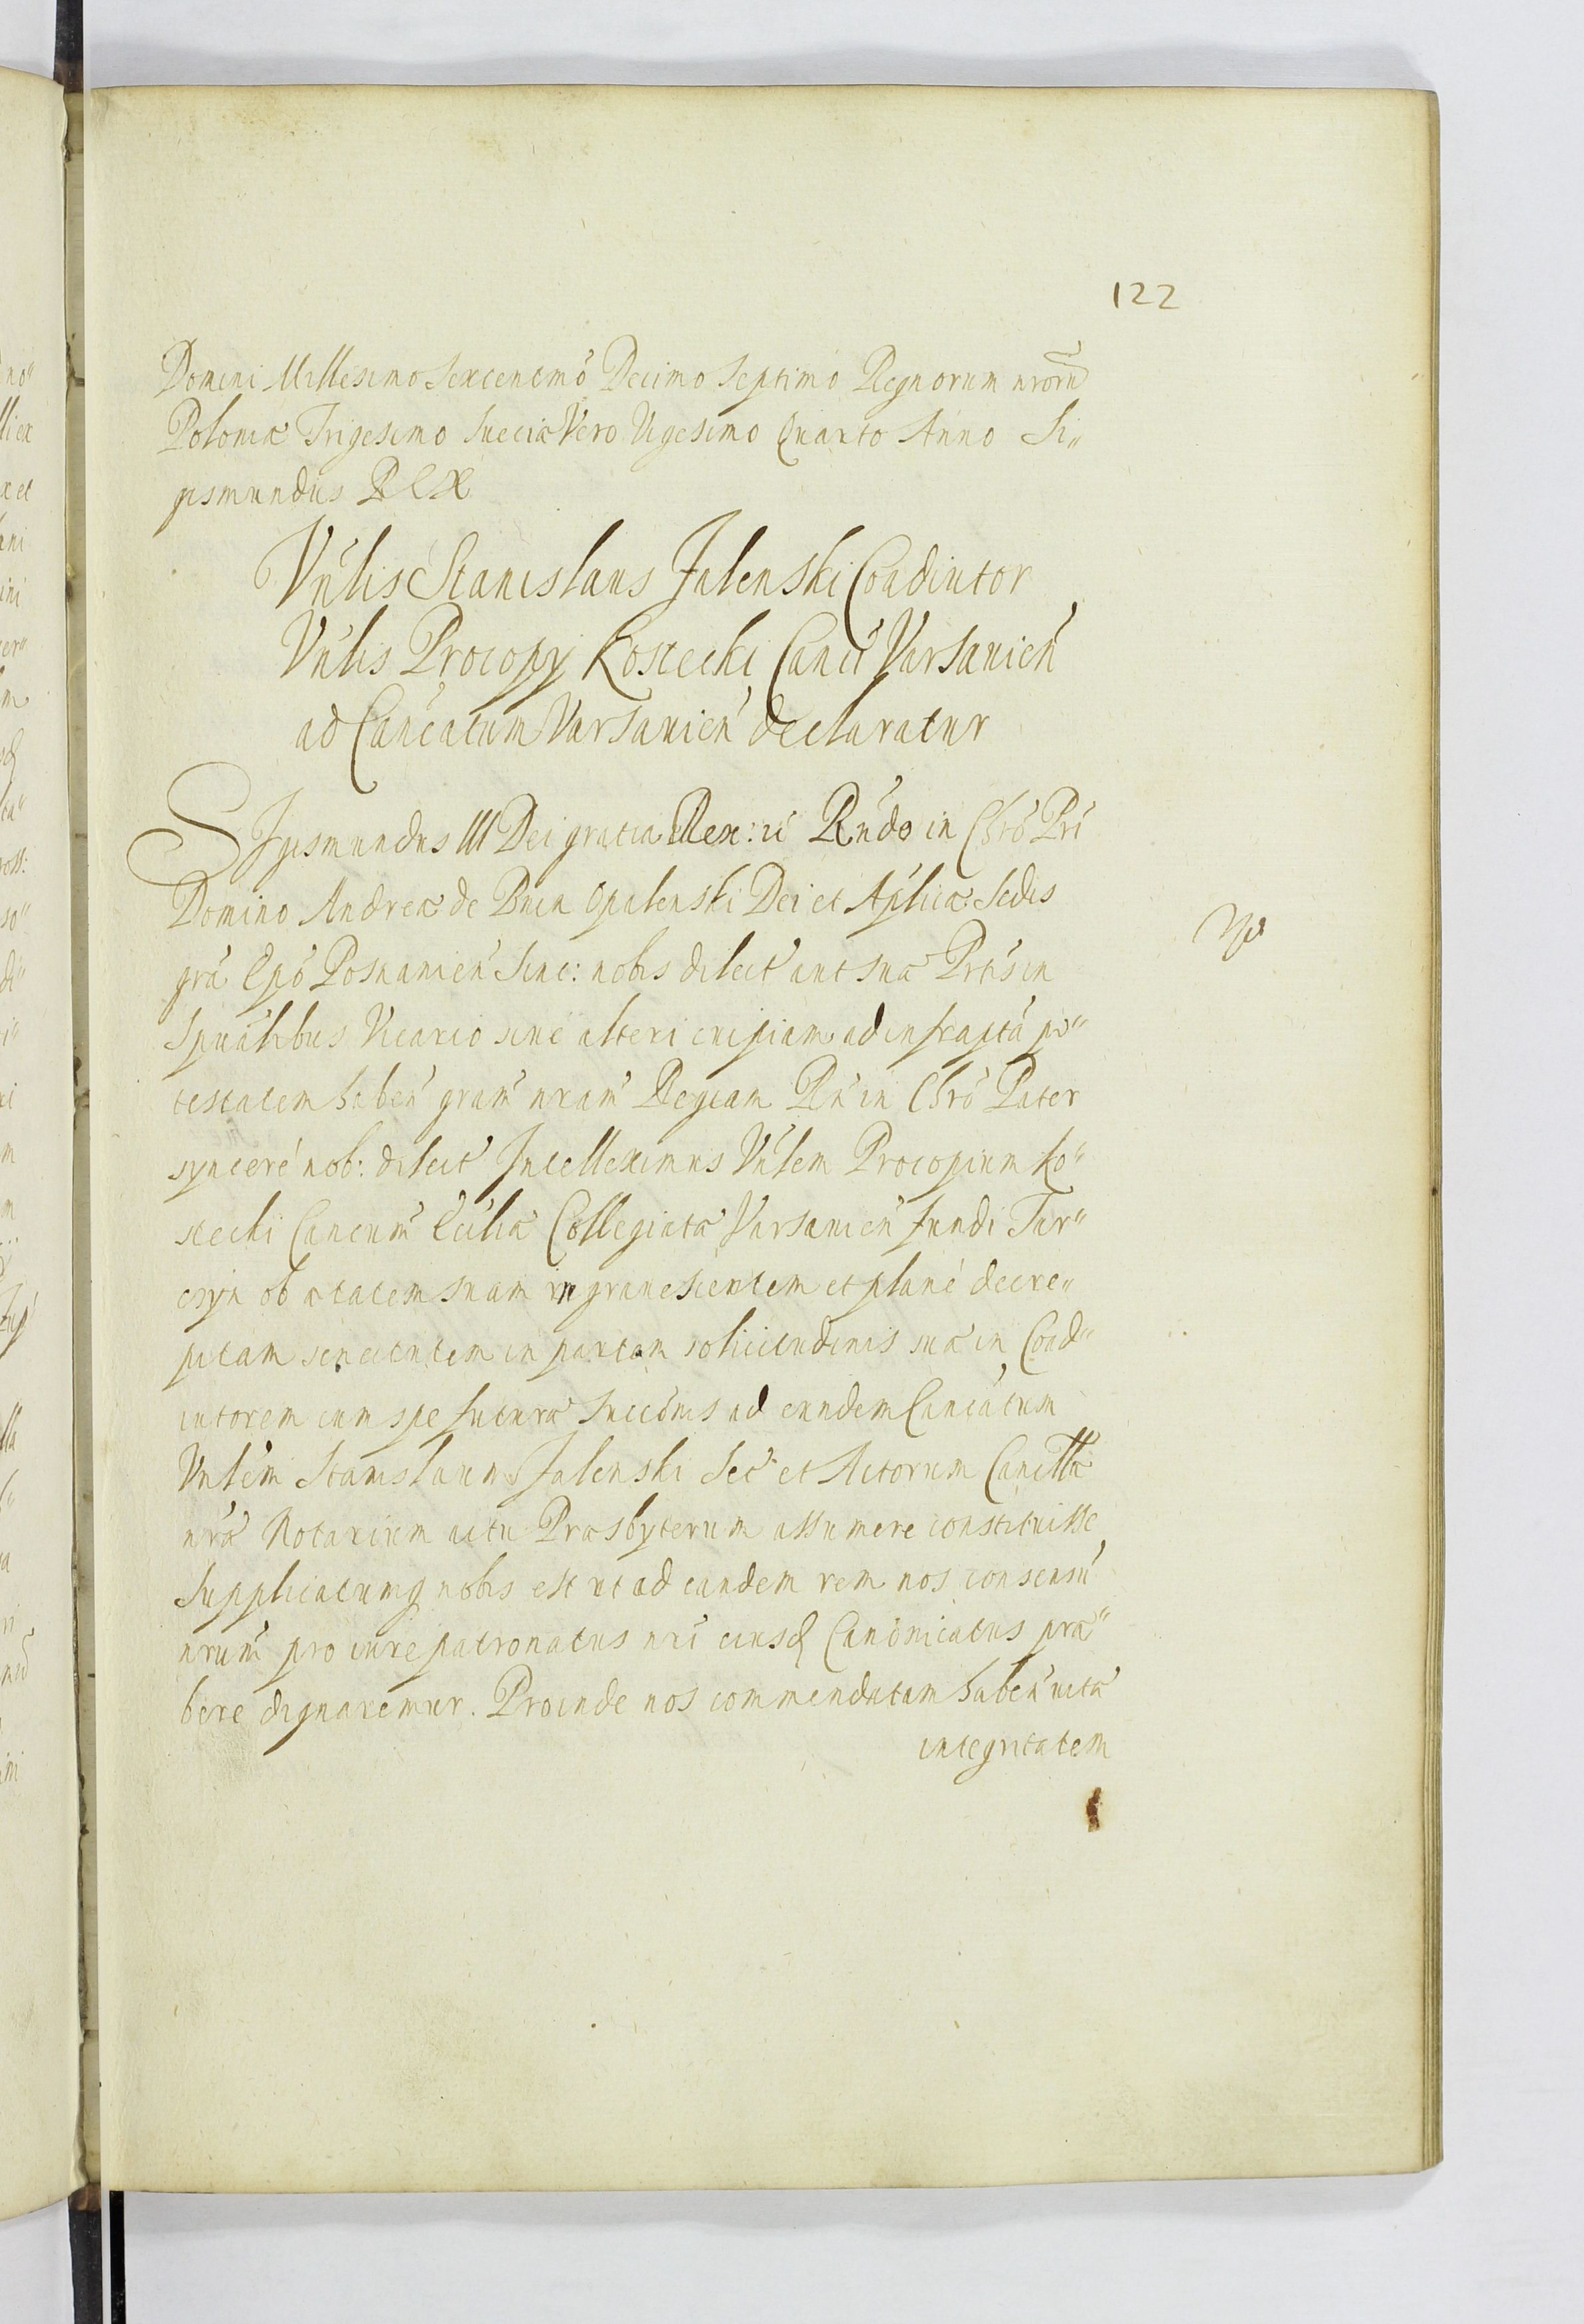 122
Domini Millesimo Sexcentmo Decimo Septimo Regnorum nrorũ
Poloniæ Trigesimo Sueciæ Vero Vigesimo Quarto Anno Si„
gismundus REX
Vnlis Stanislaus Jalenski Coadiutor
Vnlis Procopÿ Kostecki Canci Varsauien
ad Cancatum Varsauien declaratur
SIgismundus III Dei gratia Rex: Rndo in Chro Pri
Domino Andreæ de Bnin Opalenski Dei et Aplicæ Sedis
gra Epo Posnanien Sinc: nobis dilect aut suæ Prtis in
Spualibus Vicario siue alteri cuipiam ad infrapta po„
testatem haben gram nram Regiam Rn in Chro Pater
synceré nob: dilect Intelleximus Vnlem Procopium Ko„
stecki Cancum Eccliæ Collegiatæ Varsauien fundi Tar„
czyn ob ætatem suam ingrauescientem et plané decre„
pitam senectutem in partem solicitudinis suæ in Coad„
iutorem cum spe futuræ Succonis ad eundem Cancatum
Vnlem Stanislaum Jalenski Sec et Actorum Cancllæ
nræ Notarium actu Præsbyterum assumere constituisse
Supplicatumq nobis est ut ad eandem rem nos consensũ
nrum pro iure patronatus nri eiusd Canonicatus præ„
bere dignaremur. Proinde nos commendatam haben uitæ
integritatem